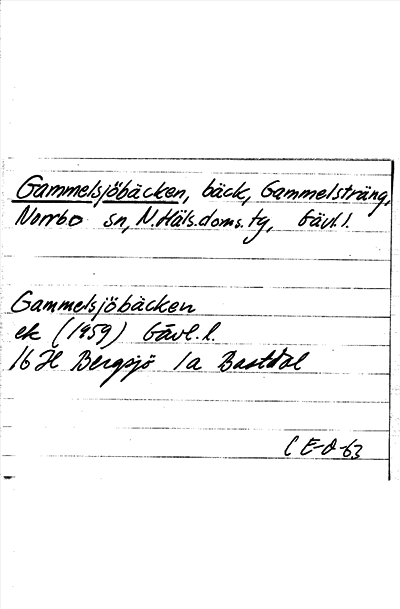 Gammelsjöbäcken, bäck, Gammelsträng,
Norrbo sn, N.Häls.doms.tg, Gävl.l.
Gammelsjöbäcken
ek (1959) Gävl.l.
16 H Bergsjö 1a Bastdal
C E-O-63